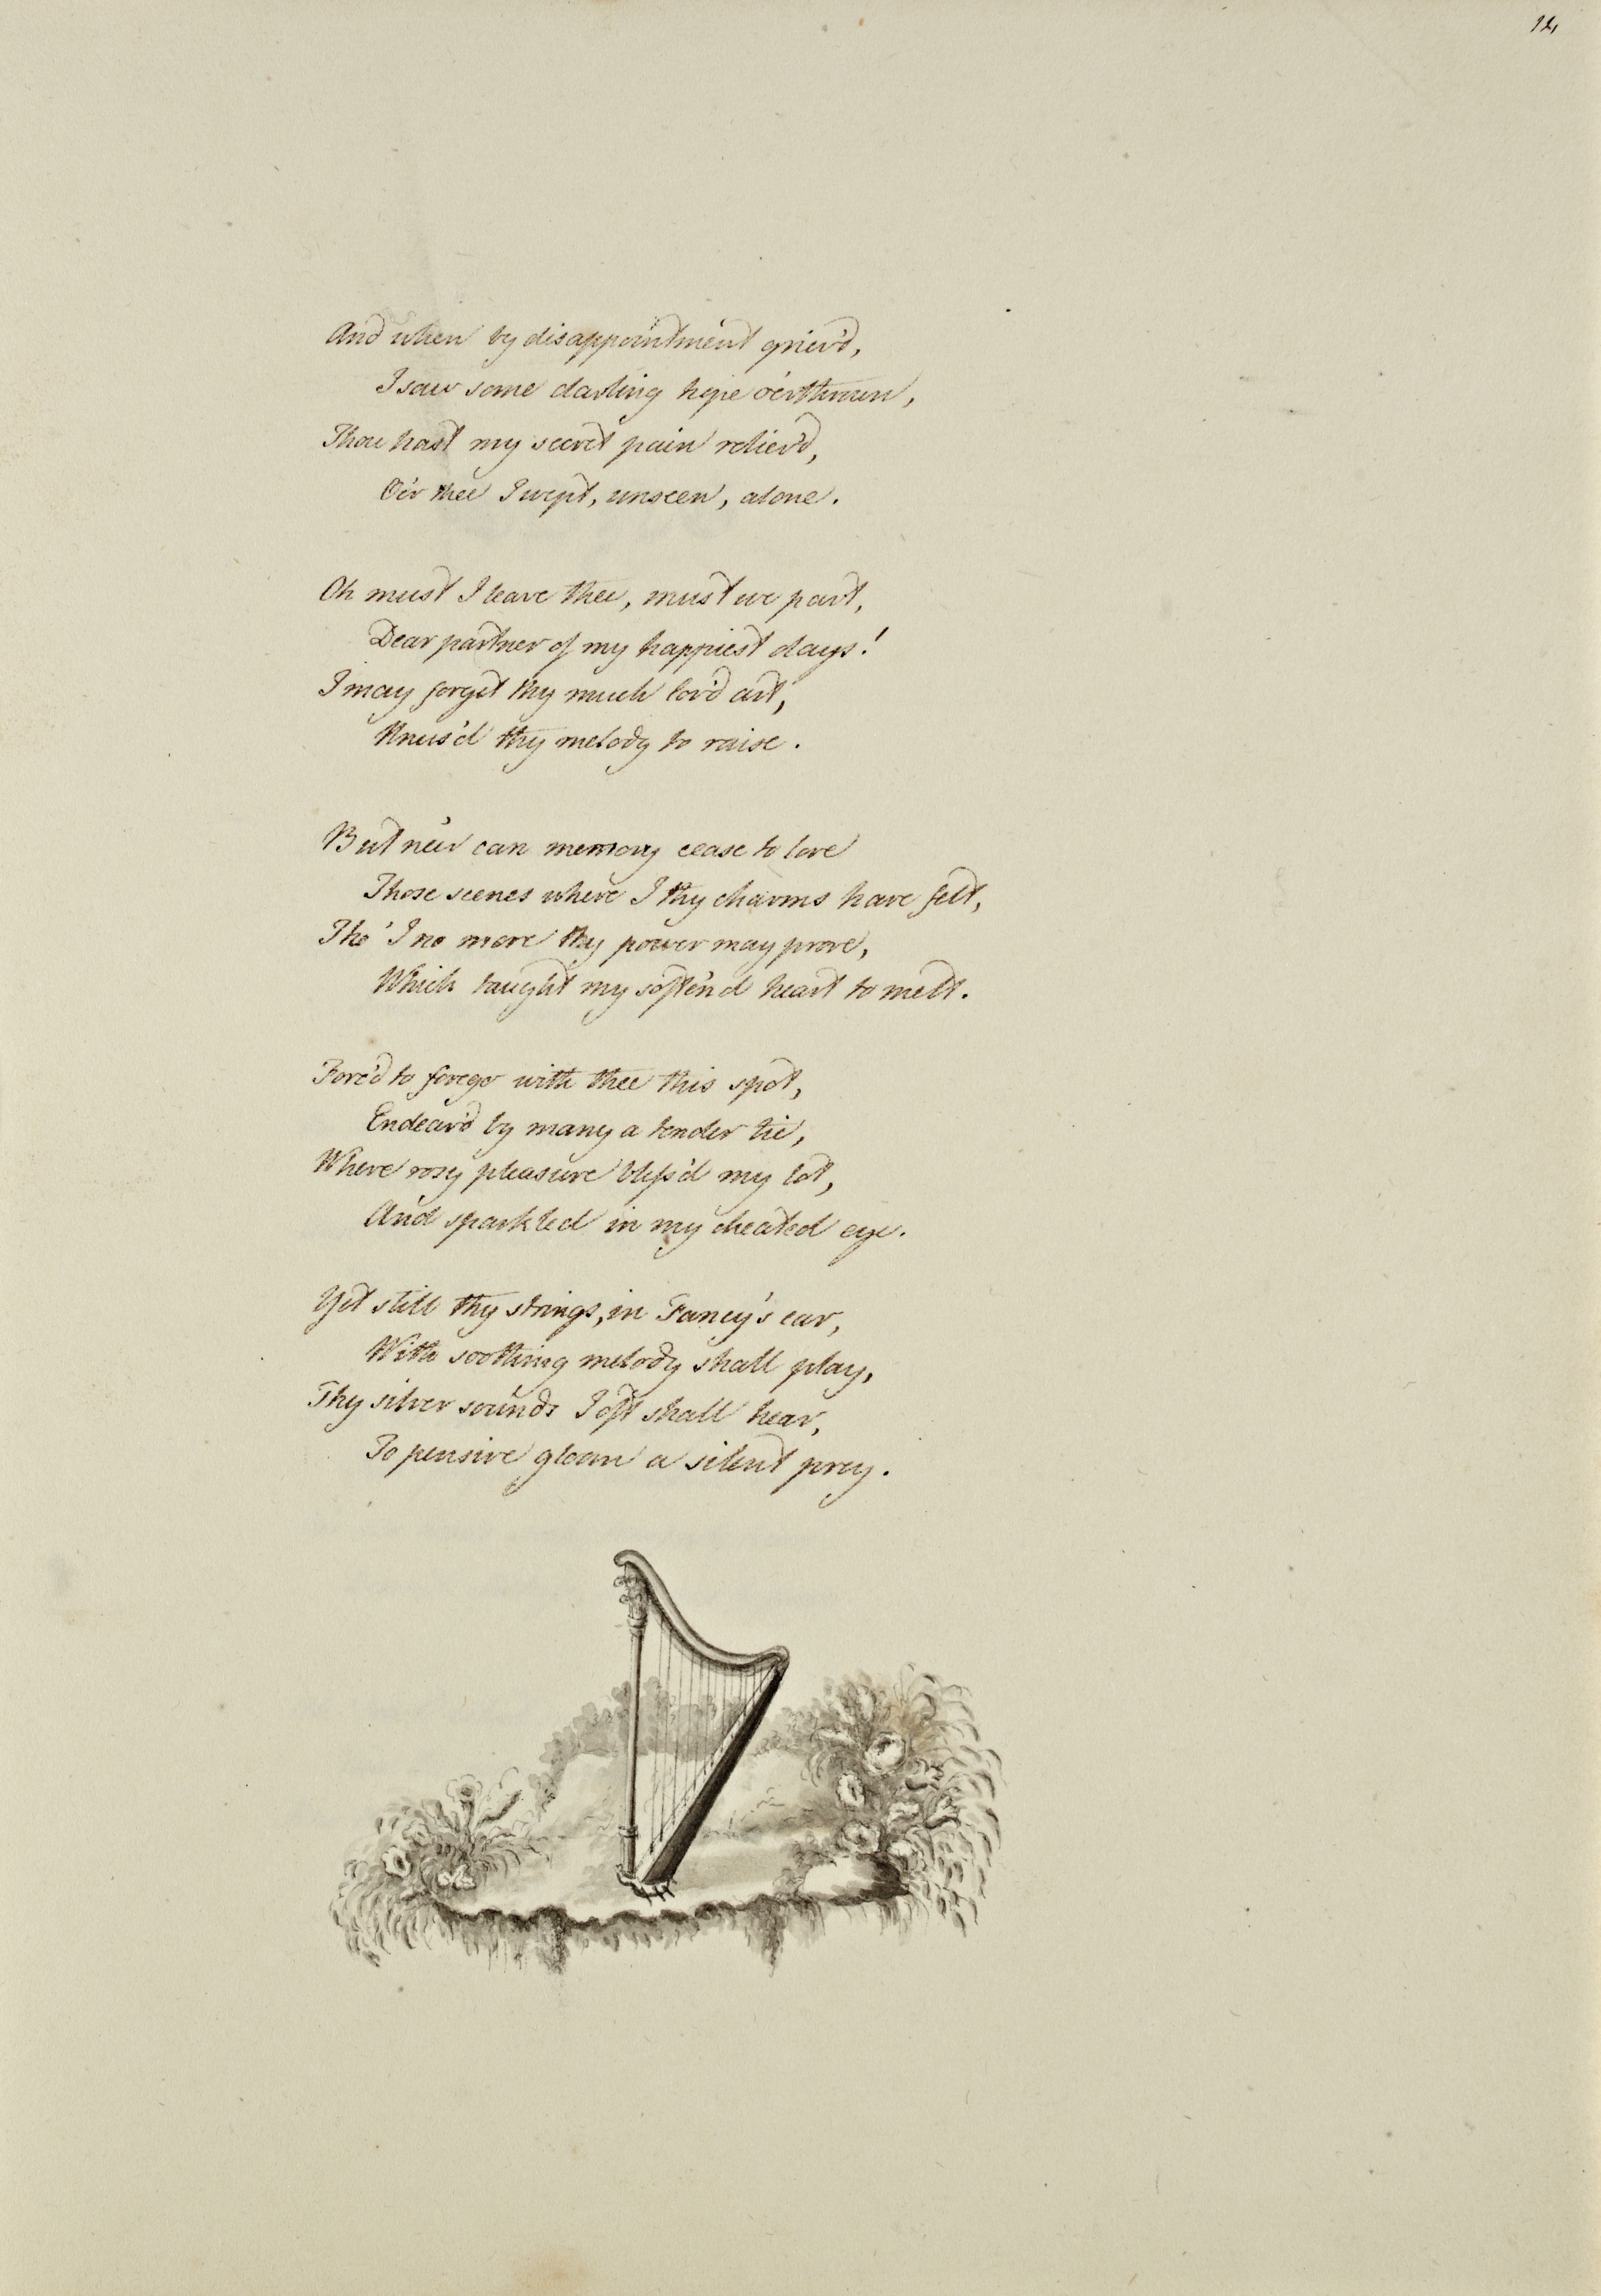 12
And when by disappointment griev'd,
I saw some darling hope o'erthrown,
Thou hast my secret pain reliev'd,
O'er thee I wept, unseen, alone.
Oh must I leave thee, must we part,
Dear partner of my happiest days!
I may forget thy much lov'd art,
Unus'd thy melody to raise.
But ne'er can memory cease to love
Those scenes where I thy charms have felt,
Tho' I no more thy power may prove,
Which taught my soft'en'd heart to melt.
Forc'd to forego with thee this spot,
Endear'd by many a tender tie,
Where rosy pleasure bless'd my lot,
And sparkled in my cheated eye.
Yet still thy strings, in Fancy's ear,
With soothing melody shall play,
Thy silver sounds I oft shall hear,
To pensive gloom a silent prey.